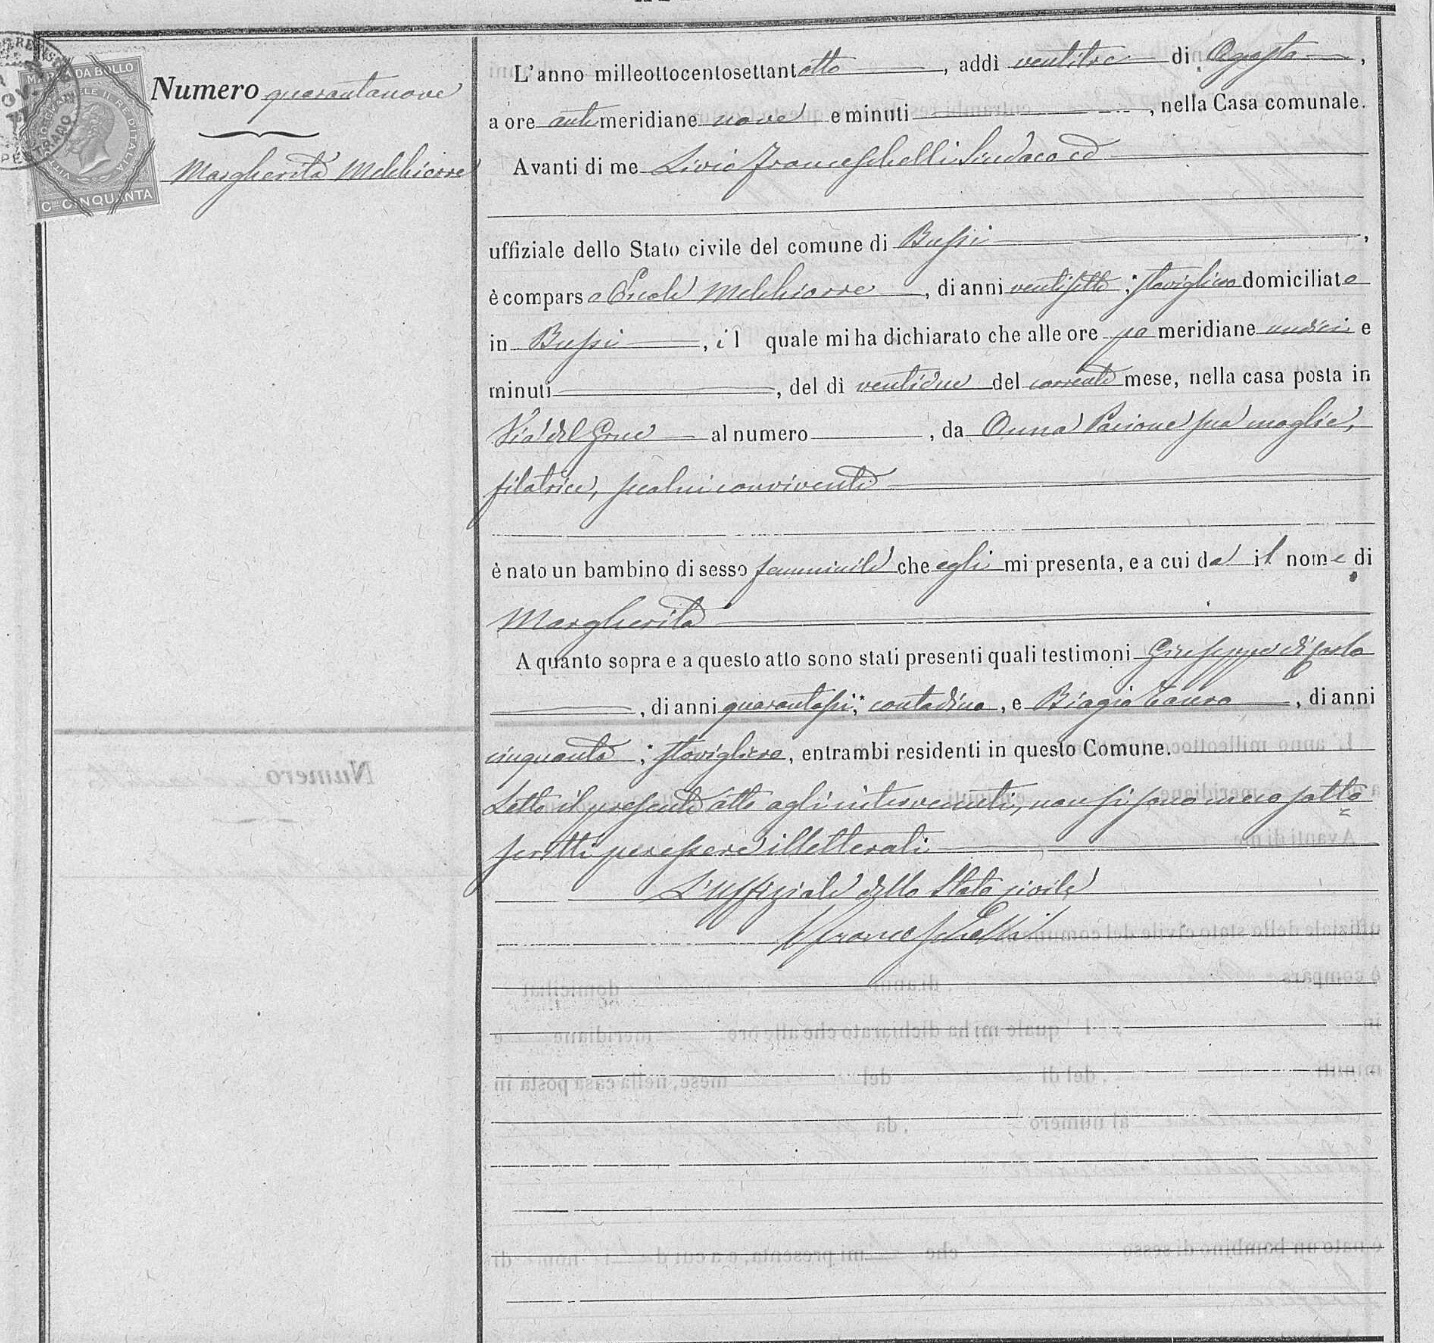 MARCA DA BOLLO
C.mi CINQUANTA
Numero quarantanove
Margherita Melchiorre
L'anno milleottocentosettantotto, addì ventitre di Agosto,
a ore antimeridiane nove e minuti, nella Casa comunale.
Avanti di me Livio Franceschelli Sindaco ed
uffiziale dello Stato civile del comune di Bussi,
è comparso Ercole Melchiorre, di anni ventisette, stovigliero domiciliato
in Bussi, il quale mi ha dichiarato che alle ore pomeridiane undici e
minuti, del dì ventidue del corrente mese, nella casa posta in
Via del al numero, da Anna Pacione sua moglie,
filatrice, seco lui convivente
è nato un bambino di sesso femminile che egli mi presenta, e a cui da il nome di
Margherita
A quanto sopra e a questo atto sono stati presenti quali testimoni Giuseppe di Carlo
, di anni quarantasei, contadino, e Biagio Lauro, di anni
cinquanta, stovigliero, entrambi residenti in questo Comune.
Letto il presente atto agli intervenuti, non si sono meco sotto
scritti per essere illetterati
L'Uffiziale dello Stato civile
L Franceschelli